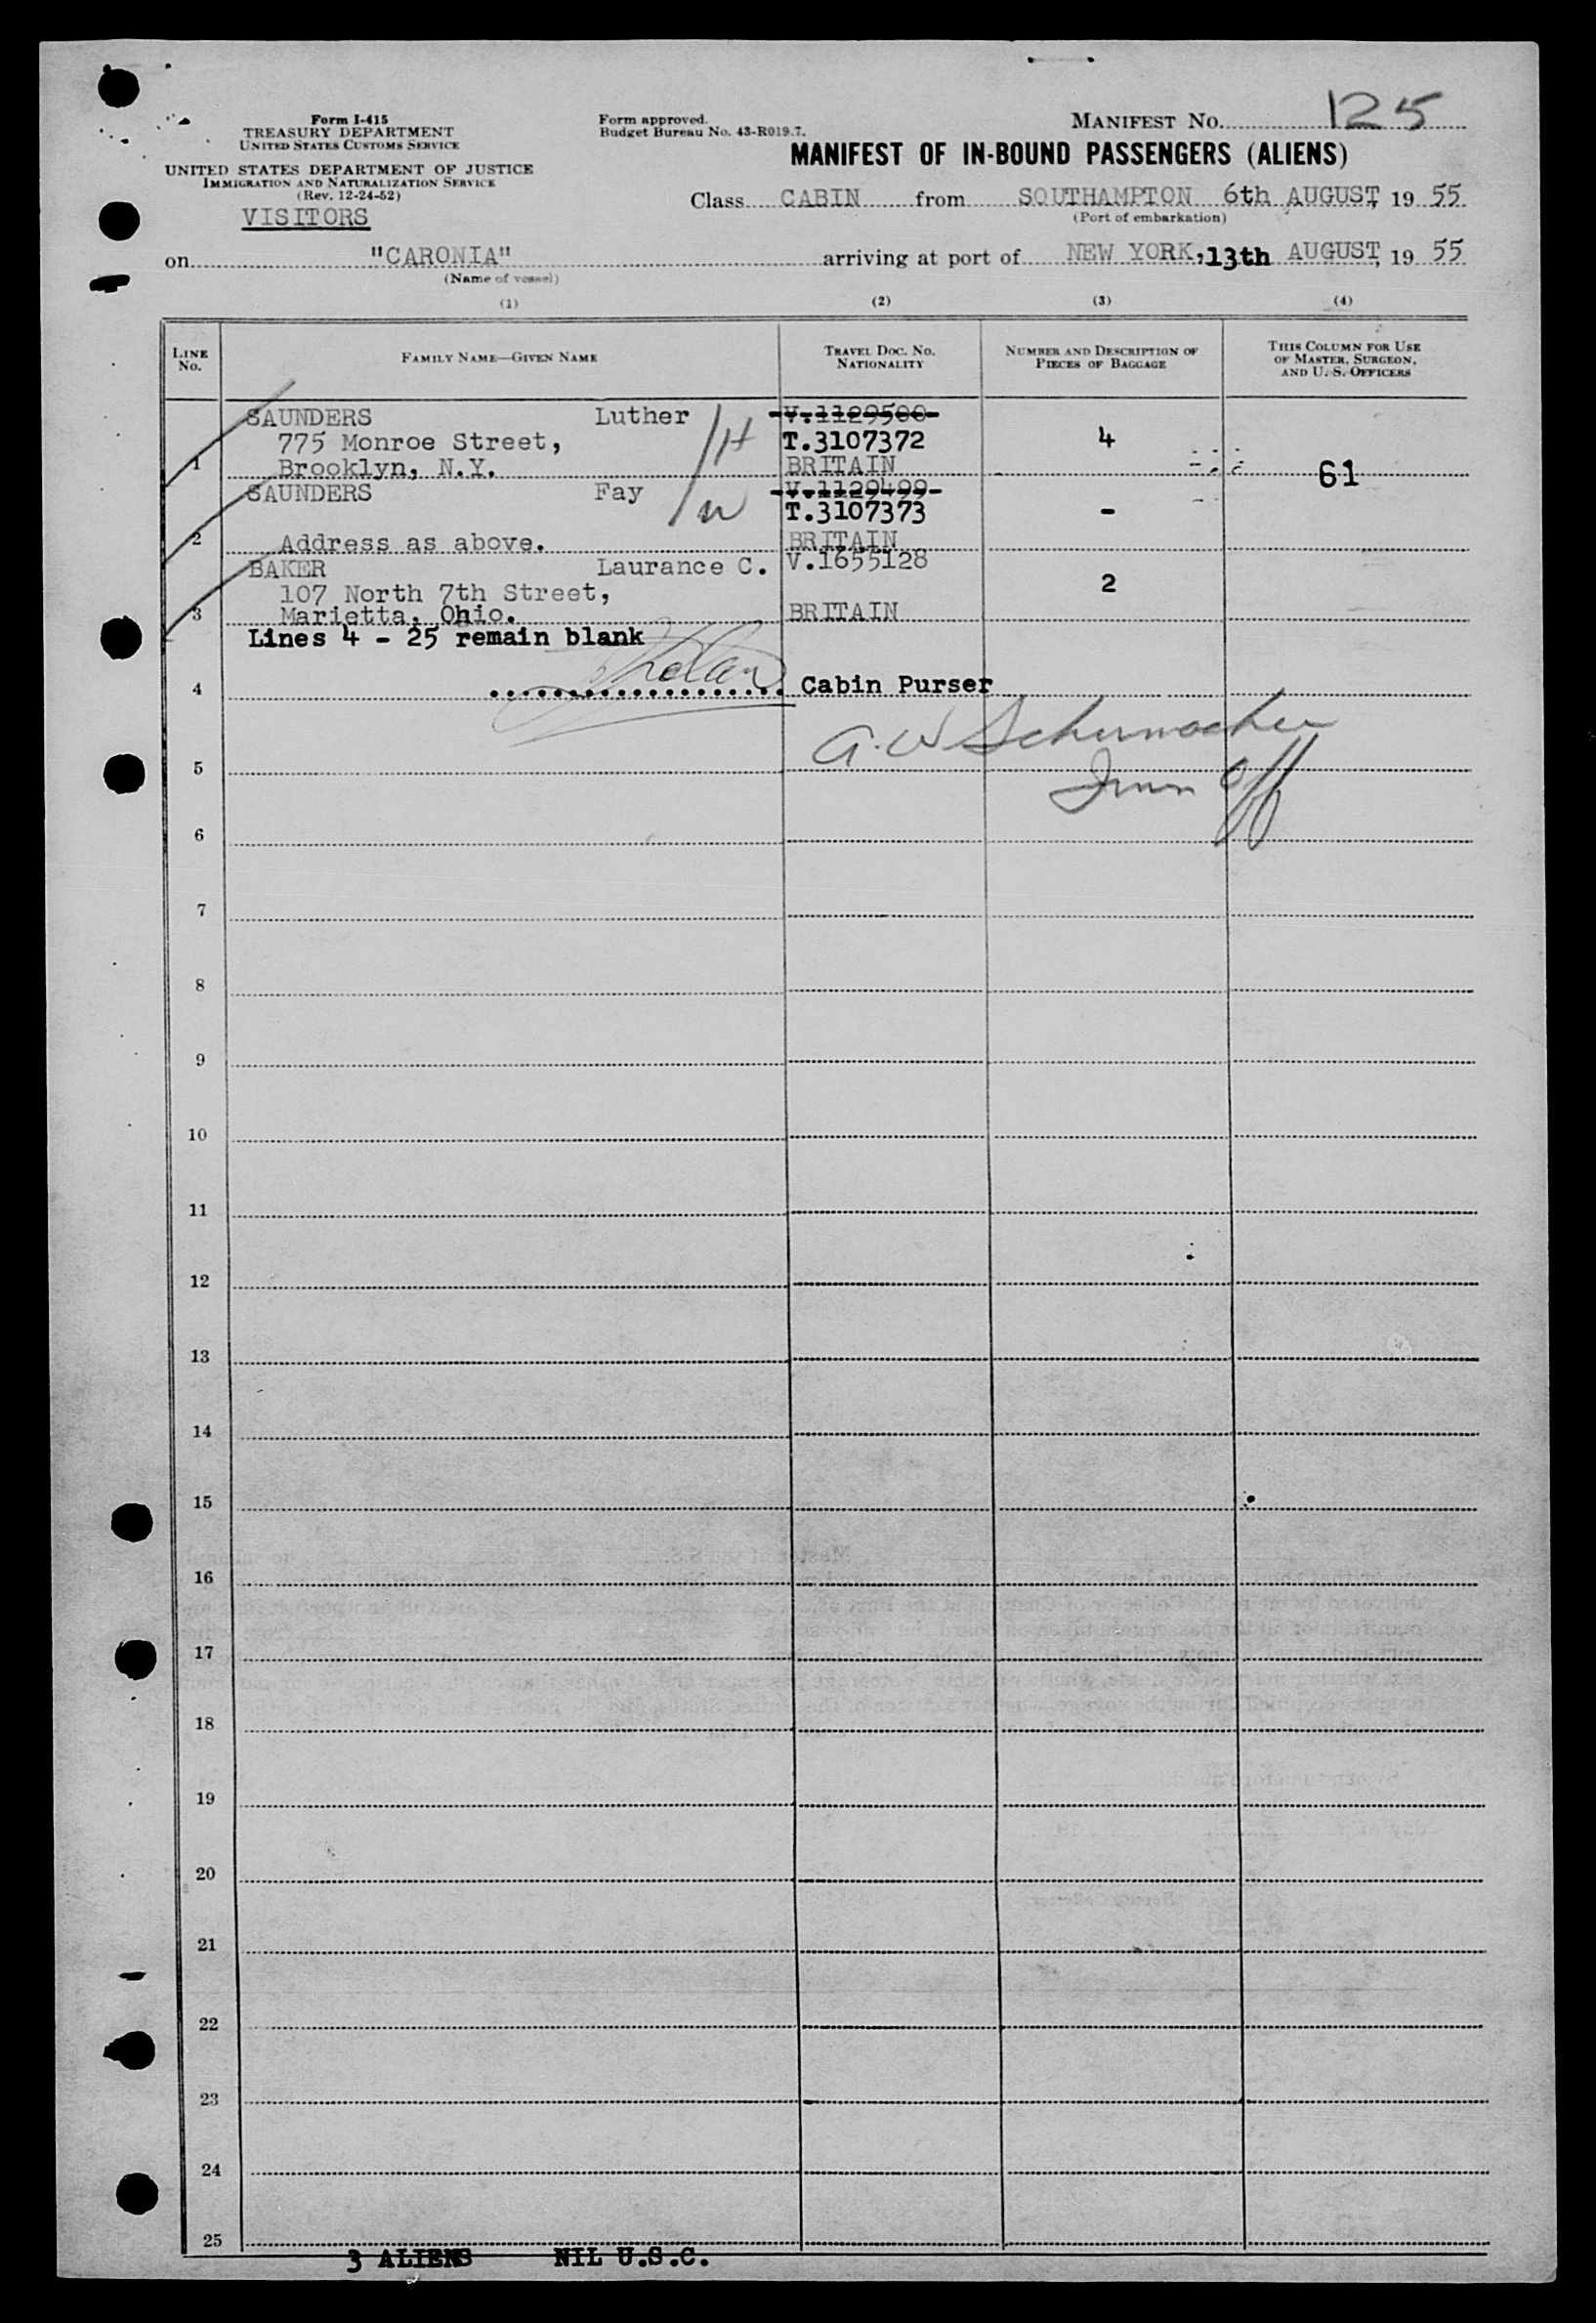 Form I-415
TREASURY DEPARTMENT
UNITED STATES CUSTOMS SERVICE
UNITED STATES DEPARTMENT OF JUSTICE
IMMIGRATION AND NATURALIZATION SERVICE
(Rev. 12-24-52)
VISITORS
Form approved.
Budget Bureau No. 43-R019.7.
MANIFEST No. 125
MANIFEST OF IN-BOUND PASSENGERS (ALIENS)
Class CABIN from SOUTHAMPTON 6th AUGUST, 19 55
(Port of embarkation)
on "CARONIA" arriving at port of NEW YORK, 13th AUGUST, 19 55
(Name of vessel)
(1) (2) (3) (4)
LINE No. FAMILY NAME—GIVEN NAME TRAVEL DOC. No. NATIONALITY NUMBER AND DESCRIPTION OF PIECES OF BAGGAGE THIS COLUMN FOR USE OF MASTER, SURGEON, AND U. S. OFFICERS
SAUNDERS Luther V.1129500
775 Monroe Street, /H T.3107372 4
1 Brooklyn, N.Y. BRITAIN 61
SAUNDERS Fay V.1129499
/W T.3107373 -
2 Address as above. BRITAIN
BAKER Laurance C. V.1655128
107 North 7th Street, 2
3 Marietta, Ohio. BRITAIN
Lines 4 - 25 remain blank
4 Cabin Purser
A. W Schumacher
5
Imm Off
6
7
8
9
10
11
12
13
14
15
16
17
18
19
20
21
22
23
24
25
3 ALIENS NIL U.S.C.